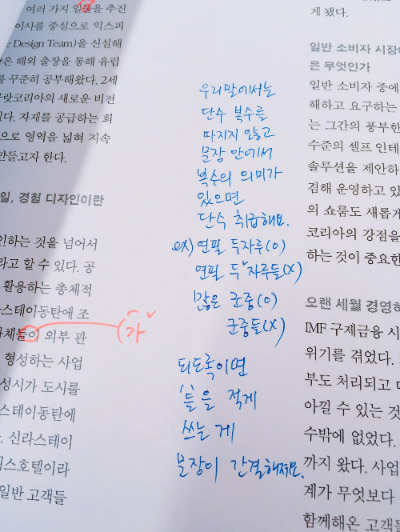 여러 가지 일들을 추진
이사를 중심으로 익스피
Design Team)을 신설해
은 해외 출장을 통해 유럽
를 꾸준히 공부해왔다. 2세
랏코리아의 새로운 비전
다. 자재를 공급하는 회
으로 영역을 넓혀 지속
만들고자 한다.
일, 경험 디자인이란
인하는 것을 넘어서
라고 할 수 있다. 공
활용하는 총체적
스테이동탄에 조
체들이 외부 관
형성하는 사업
성시가 도시를
스테이동탄에
신라스테이
스호텔이라
일반 고객들
(가
우리말에서는
단수 복수를
따지지 않고
문장 안에서
복수의 의미가
있으면
단수 취급해요.
ex) 연필 두자루(O)
연필 두 자루들(X)
많은 군중(O)
군중들(X)
되도록이면
'들'을 적게
쓰는 게
문장이 간결해져요.
게 됐다.
일반 소비자 시장이
은 무엇인가
일반 소비자 중에
해하고 요구하는
는 그간의 풍부한
수준의 셀프 인테
솔루션을 제안하
김해 운영하고 있
의 쇼룸도 새롭게
코리아의 강점을
하는 것이 중요한
오랜 세월 경영하
IMF 구제금융 시
위기를 겪었다.
부도 처리되고
아낄 수 있는 것
수밖에 없었다.
까지 왔다. 사업
계가 무엇보다
함께해온 고객들